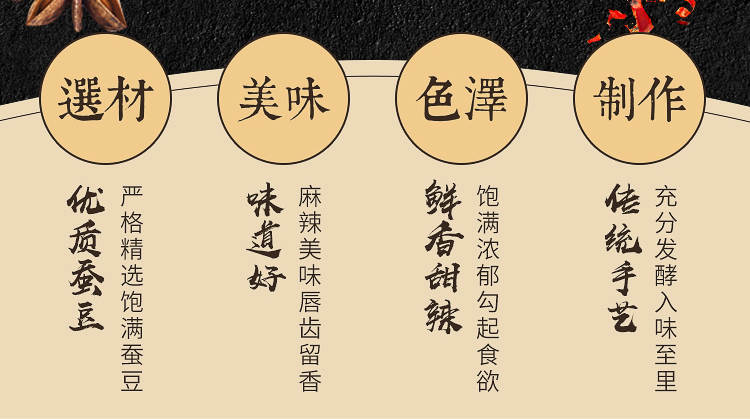 選材
优质蚕豆
严格精选饱满蚕豆
美味
味道好
麻辣美味唇齿留香
色澤
鲜香甜辣
饱满浓郁勾起食欲
制作
传统手艺
充分发酵入味至里